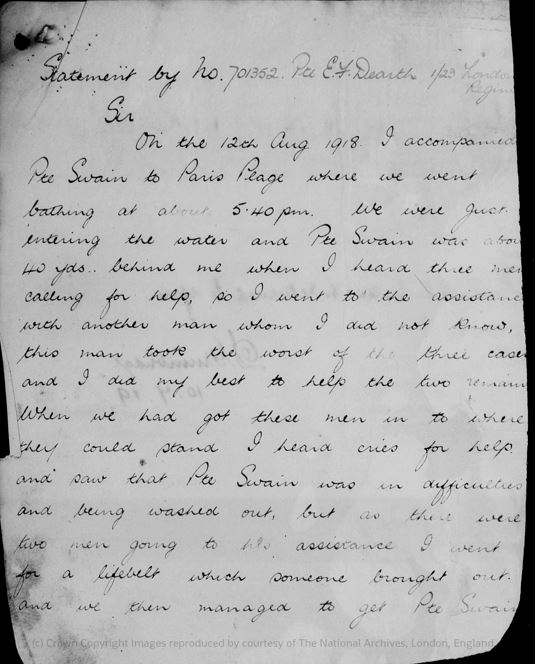 Statement by No. 701352. Pte E.F. Dearth 1/23 London
Regim
Sir
On the 12th Aug 1918. I accompanied
Pte Swain to Paris Peage where we went
bathing at about 5.40 pm. We were just
entering the water and Pte Swain was abou
40 yds.. behind me when I heard three men
calling for help, so I went to the assistance
with another man whom I did not know,
this man took the worst of the three cases
and I did my best to help the two remain
When we had got these men in to where
they could stand I heard cries for help.
and saw that Pte Swain was in difficulties
and being washed out, but as there were
two men going to his assistance I went
for a lifebelt which someone brought out.
and we then managed to get Pte Swain
(c) Crown Copyright Images reproduced by courtesy of The National Archives, London, England